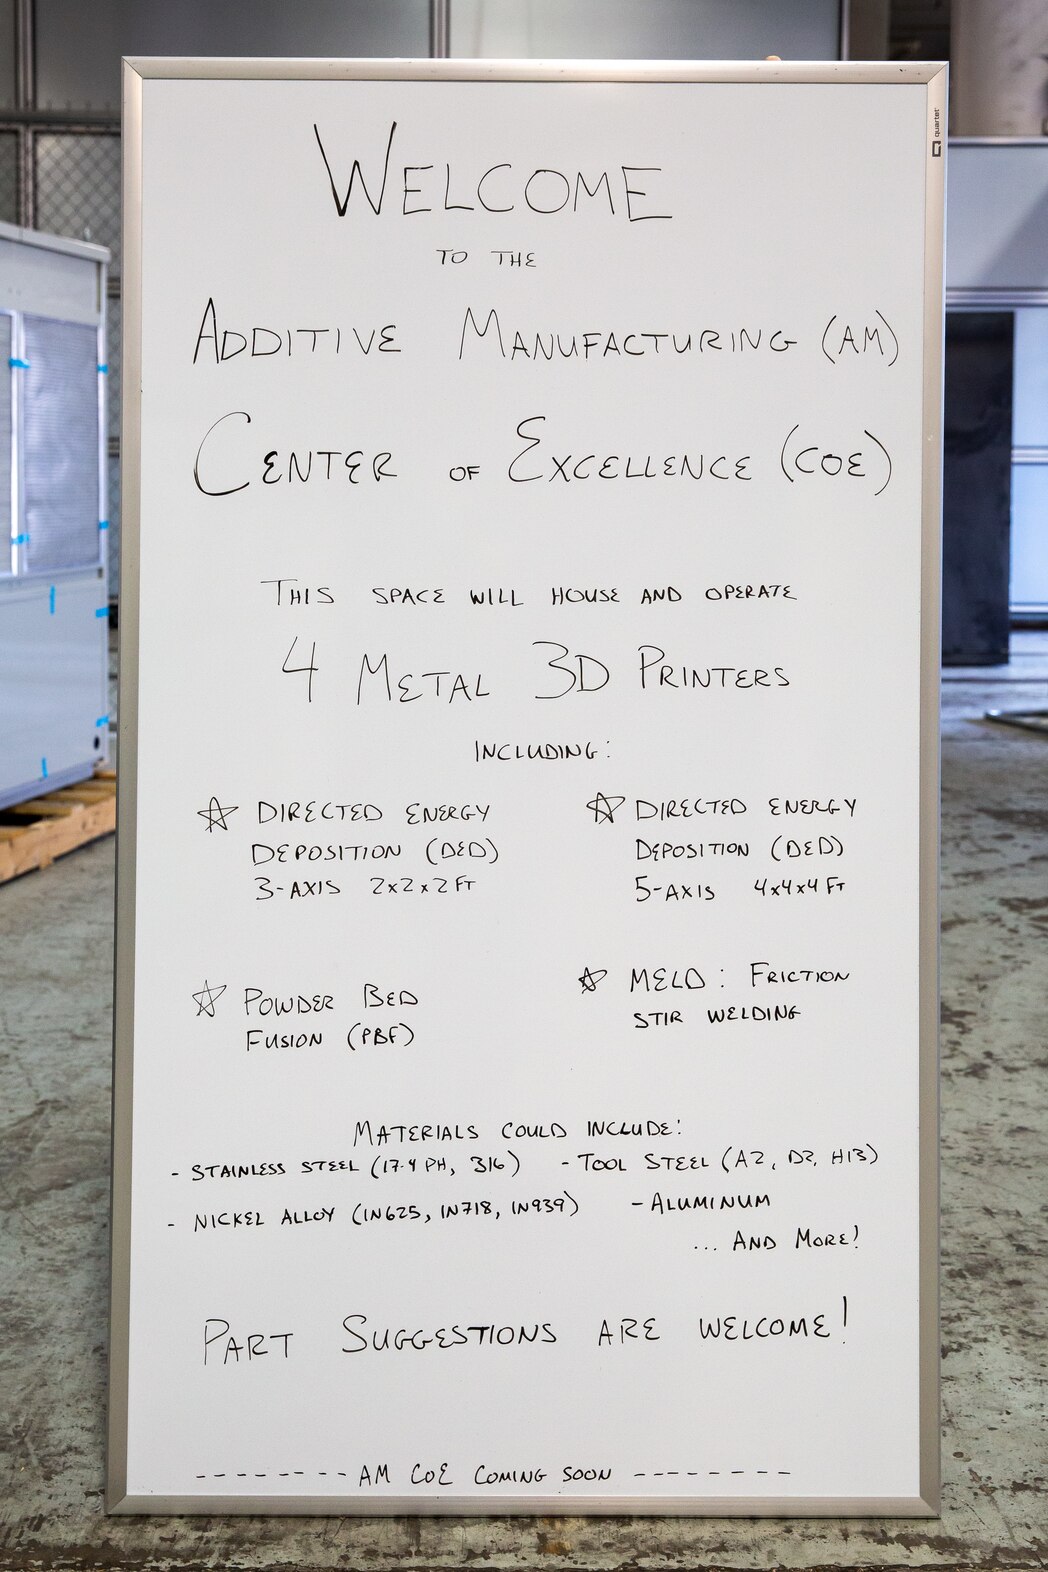 quartet
WELCOME
TO THE
ADDITIVE MANUFACTURING (AM)
CENTER OF EXCELLENCE (COE)
THIS SPACE WILL HOUSE AND OPERATE
4 METAL 3D PRINTERS
INCLUDING:
☆ DIRECTED ENERGY
DEPOSITION (DED)
3-AXIS 2x2x2 FT
☆ DIRECTED ENERGY
DEPOSITION (DED)
5-AXIS 4x4x4 FT
☆ POWDER BED
FUSION (PBF)
☆ MELD: FRICTION
STIR WELDING
MATERIALS COULD INCLUDE:
- STAINLESS STEEL (17-4 PH, 316) - TOOL STEEL (A2, D2, H13)
- NICKEL ALLOY (IN625, IN718, IN939) - ALUMINUM
... AND MORE!
PART SUGGESTIONS ARE WELCOME!
-------- AM COE COMING SOON --------